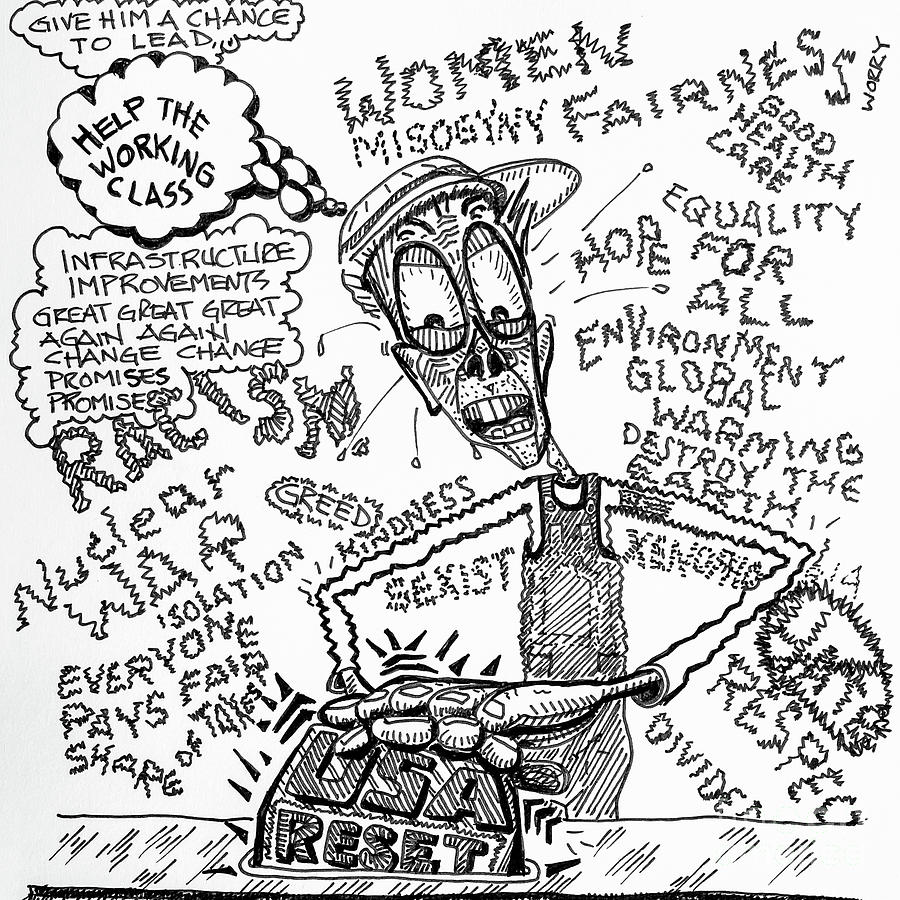 GIVE HIM A CHANCE
TO LEAD,
HELP THE
WORKING
CLASS
INFRASTRUCTURE
IMPROVEMENTS
GREAT GREAT GREAT
AGAIN AGAIN
CHANGE CHANGE
PROMISES
PROMISES
RACISM
WOMEN
MISOGYNY
FAIRNESS
WORRY
GOOD
HEALTH
CARE
EQUALITY
FOR
ALL
HOPE
ENVIRONMENT
GLOBAL
WARMING
DESTROY
THE
EARTH
GREED
KINDNESS
RESIST
NUCLEAR
WAR
ISOLATION
EVERYONE
PAYS FAIR
SHARE
USA
RESET